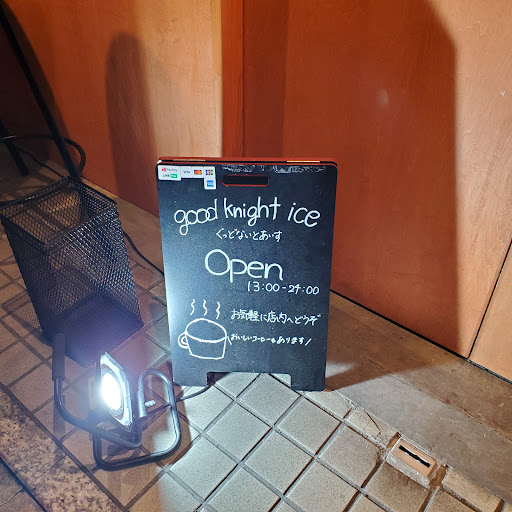 good knight ice
ぐっどないとあいす
Open
13:00-24:00
お気軽に店内へどうぞ
おいしいコーヒーもあります!
PayPay VISA
LINE Pay